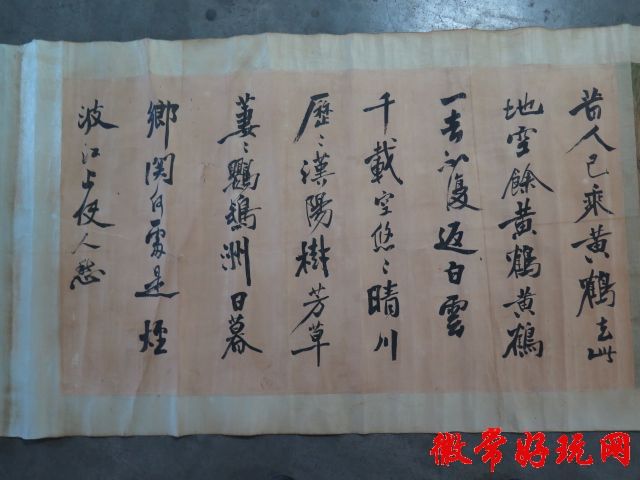 昔人已乘黄鶴去此
地空餘黄鶴黄鶴
一去不復返白雲
千載空悠〻晴川
歷〻漢陽樹芳草
萋〻鸚鵡洲日暮
鄉関何處是煙
波江上使人愁
徽常好玩网